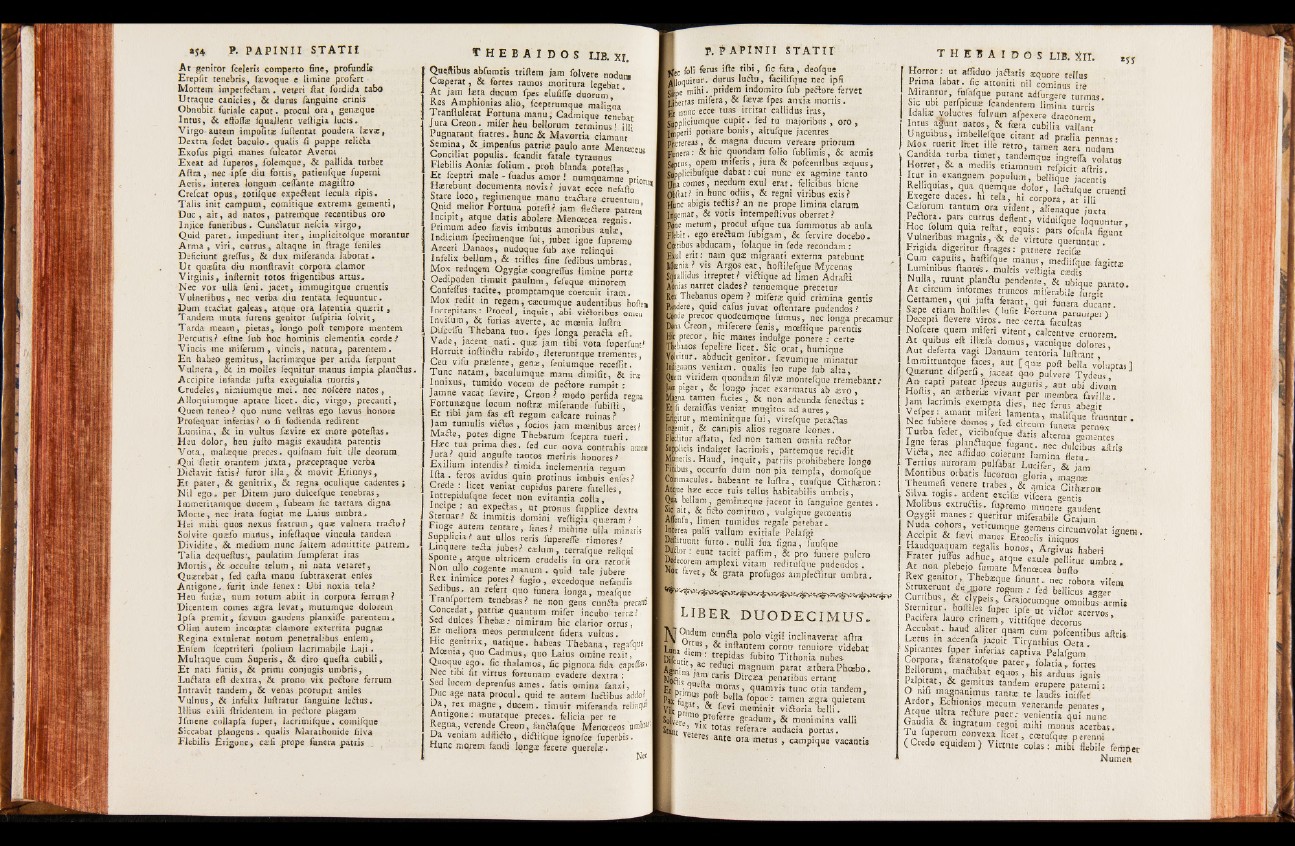 254 P. PAPINII STATII
At genitor sceleris comperto fine, profundis
Erepsit tenebris, sævoque e limine profert
Mortem imperfectam. veteri stat sordida tabo
Utraque canicies, & durus sanguine crinis
Obnubit furiale caput. procul ora, genæque
Intus, & effossæ squallent vestigia lucis.
Virgo autem impositæ sustentat pondera lævæ,
Dextra sedet baculo. qualis si puppe relicta
Exosus pigri manes sulcator Averni
Exeat ad superos, solemque, & pallida turbet
Astra, nec ipse diu fortis, patiensque superni
Aeris. interea longum cessante magistro
Crescat opus, totisque expectent secula ripis.
Talis init campum, comitique extrema gementi,
Duc, ait, ad natos, patremque recentibus oro
Injice funeribus. Cunctatur nescia virgo,
Quid paret. impediunt iter, implicitosque morantur
Arma, viri, currus, altaque in strage seniles
Deficiunt gressus, & dux miseranda laborat.
Ut quæsita diu monstravit corpora clamor
Virginis, insternit totos frigentibus artus.
Nec vox ulla seni. jacet, immugitque cruentis
Vulneribus, nec verba diu tentata sequuntur.
Dum tractat galeas, atque ora latentia quærit,
Tandem muta furens genitor suspiria solvit,
Tarda meam, pietas, longo post tempore mentem
Percutis? estne sub hoc hominis clementia corde?
Vincis me miserum, vincis, natura, parentem.
En habeo gemitus, lacrimæque per arida serpunt
Vulnera, & in molles sequitur manus impia planctus.
Accipite infandæ justa exequialia mortis,
Crudeles, nimiumque mei. nec noscere natos,
Alloquiumque aptare licet. dic, virgo, precanti,
Quem teneo? quo nunc vestras ego sævus honore
Prosequar inferias? o si fodienda redirent
Lumina, & in vultus sævire ex more potestas.
Heu dolor, heu justo magis exaudita parentis
Vota, malæque preces. quisnam fuit ille deorum
Qui stetit orantem juxta, præreptaque verba
Dictavit fatis? furor illa, & movit Erinnys,
Et pater, & genitrix, & regna oculique cadentes;
Nil ego. per Ditem juro dulcesque tenebras,
Immeritamque ducem, subeam sic tartara digna
Morte, nec irata fugiat me Laius umbra.
Hei mihi quos nexus fratrum, quæ vulnera tracto?
Solvite quæso manus, infestaque vincula tandem
Dividite, & medium nunc saltem admittite patrem.
Talia dequestus, paulatim sumpserat iras
Mortis, & occulte telum, ni nata vetaret,
Quærebat, sed casta manu subtraxerat enses
Antigone. furit inde senex: Ubi noxia tela?
Heu furiæ, num totum abiit in corpora ferrum?
Dicentem comes ægra levat, mutumque dolorem
Ipsa premit, sævum gaudens planxisse parentem.
Olim autem inceptæ clamore exterrita pugnæ
Regina extulerat notum penetralibus ensem,
Ensem sceptriferi spolium lacrimabile Laji.
Multaque cum Superis, & diro questa cubili,
Et nati furiis, & primi conjugis umbris,
Luctata est dextra, & prono vix pectore ferrum
Intravit tandem, & venas prorupit aniles
Vulnus, & infelix lustratur sanguine lectus.
Illius exili stridentem in pectore plagam
Ismene collapsa super, lacrimisque, comisque
Siccabat plangens. qualis Marathonide silva
Flebilis Erigone, cæsi prope funera patris
THEBAIDOS LIB. XI.
Questibus absumtis tristem jam solvere nodum
Cœperat, & fortes ramos moritura legebat.
At jam læta ducum spes elusisse duorum,
Res Amphionias alio, sceptrumque maligna
Transtulerat Fortuna manu; Cadmique tenebat
Jura Creon. miser heu bellorum terminus! illi
Pugnarant fratres. hunc & Mavortia clamant
Semina, & impensus patriæ paulo ante Menœceus
Conciliat populis. scandit fatale tyrannus
Flebilis Aoniæ solium. proh blanda potestas,
Et sceptri male-suadus amor! numquamne priorum
Hærebunt documenta novis? juvat ecce nefasto
Stare loco, regimenque manu tractare cruentum.
Quid melior Fortuna potest? jam flectere patrem
Incipit, atque datis abolere Menœcea regnis.
Primum adeo sævis imbutus amoribus aulæ,
Indicium specimenque sui, jubet igne supremo
Arceri Danaos, nudoque sub axe relinqui
Infelix bellum, & tristes sine sedibus umbras.
Mox reducem Ogygiæ congressus limine portæ
Oedipoden timuit paulum, seseque minorem
Confessus tacite, promptamque coercuit iram.
Mox redit in regem, cæcumque audentibus hostem
Increpitans: Procul, inquit, abi victoribus omen
Invisum, & furias averte, ac mœnia lustra
Discessu Thebana tuo. spes longa peracta est.
Vade, jacent nati. quæ jam tibi vota supersunt?
Horruit instinctu rabido, steteruntque trementes,
Ceu visu præsente, genæ, seniumque recessit.
Tunc natam, baculumque manu dimisit, & iræ
Innixus, tumido vocem de pectore rumpit:
Jamne vacat sævire, Creon? modo perfida regna
Fortunæque locum nostræ miserande subisti,
Et tibi jam fas est regum calcare ruinas?
Jam tumulis victos, socios jam mœnibus arces!
Macte, potes digne Thebarum sceptra tueri.
Hæc tua prima dies. sed cur nova contrahis amens
Jura? quid anguste tantos metiris honores?
Exilium intendis? timida inclementia regum
Ista. feros avidus quin protinus imbuis enses?
Crede: licet veniat cupidus parere satelles,
Intrepidusque secet non evitantia colla,
Incipe: an expectas, ut pronus supplice dextra
Sternar? & immitis domini vestigia quæram?
Finge autem tentare, sines? mihine ulla minaris
Supplicia? aut ullos reris superesse timores?
Linquere tecta jubes? cælum, terrasque reliqui
Sponte, atque ultricem crudelis in ora retorsi
Non ullo cogente manum. quid tale jubere
Rex inimice potes? fugio, excedoque nefandis
Sedibus. an refert quo funera longa, measque
Transportem tenebras? ne non gens cuncta precanti
Concedat, patriæ quantum miser incubo terræ!
Sed dulces Thebæ: nimirum hic clarior ortus,
Et meliora meos permulcent sidera vultus.
Hic genitrix, natique. habeas Thebana, regasque
Mœnia, quo Cadmus, quo Laius omine rexit,
Quoque ego. sic thalamos, sic pignora fida capessas.
Nec tibi sit virtus fortunam evadere dextra:
Sed lucem deprensus ames. satis omina sanxi,
Duc age nata procul. quid te autem luctibus addo?
Da, rex magne, ducem. timuit miseranda relinqui
Antigone: mutatque preces. felicia per te
Regna, verende Creon, sanctasque Menœceos umbras,
Da veniam adflicto, dictisque ignosce superbis.
Hunc morem fandi longæ fecere querelæ.
Nec
P. PAPINII STATII
Nec soli ferus iste tibi, sic fata, deosque
Alloquitur. durus luctu, facilisque nec ipsi
Sæpe mihi. pridem indomito sub pectore fervet
Libertas misera, & sævæ spes anxia mortis.
Et nunc ecce tuas irritat callidus iras,
Suppliciumque cupit. sed tu majoribus, oro,
Imperii potiare bonis, altusque jacentes
Prætereas, & magna ducum vereare priorum
Funera: & hic quondam solio sublimis, & armis
Septus, opem miseris, jura & poscentibus æquus,
Supplicibusque dabat: cui nunc ex agmine tanto
Una comes, necdum exul erat. felicibus hicne
Obstat? in hunc odiis, & regni viribus exis?
Hunc abigis tectis? an ne prope limina clarum
Ingemat, & votis intempestivus oberret?
Pone metum, procul usque tua summotus ab aula
Flebit. ego erectum subigam, & servire docebo.
Cœtibus abducam, solaque in sede recondam:
Exul erit: nam quæ migranti externa patebunt
Mœnia? vis Argos eat, hostilesque Mycenas
Squallidus irreptet? victique ad limen Adrasti
Aonias narret clades? tenuemque precetur
Rex Thebanus opem? miseræ quid crimina gentis
Pandere, quid casus juvat ostentare pudendos?
Conde precor quodcumque sumus, nec longa precamur
Dona Creon, miserere senis, mœstique parentis
Hic precor, hic manes indulge ponere: certe
Thebanos sepelire licet. Sic orat, humique
Volvitur. abducit genitor. sævumque minatur
Indignans veniam. qualis leo rupe sub alta,
Quem viridem quondam silvæ montesque tremebant:
Jam piger, & longo jacet exarmatus ab ævo,
Magna tamen facies, & non adeunda senectus:
Et si demissas veniat mugitus ad aures,
Erigitur, meminitque sui, viresque peractas
Ingemit, & campis alios regnare leones.
Flectitur affatu, sed non tamen omnia rector
Supplicis indulget lacrimis, partemque recidit
Muneris. Haud, inquit, patriis prohibebere longe
Finibus, occursu dum non pia templa, domosque
Commacules. habeant te lustra, tuusque Cithæron:
Atque hæc ecce tuis tellus habitabilis umbris,
Qua bellum, geminæque jacent in sanguine gentes.
Sic ait, & ficto comitum, vulgique gementis
Assensu, limen tumidus regale petebat.
Interea pulsi vallum exitiale Pelasgi
Destituunt furto. nulli sua signa, suusque
Ductor: eunt taciti passim, & pro funere pulcro
Dedecorem amplexi vitam reditusque pudendos.
Nox favet, & grata profugos amplectitur umbra.
LIBER DUODECIMUS.
NOndum cuncta polo vigil inclinaverat astra
Ortus, & instantem cornu tenuiore videbat
Luna diem: trepidas subito Tithonia nubes
Discutit, ac reduci magnum parat æthera Phœbo.
Agmina jam raris Dircæa penatibus errant
Noctis questa moras, quamvis tunc otia tandem,
Et primus post bella sopor: tamen ægra quietem
Pax fugat, & sævi meminit victoria belli.
Vix primo proferre gradum, & munimina valli
Solvere, vix totas reserare audacia portas.
Stant veteres ante ora metus, campique vacantis
THEBAIDOS LIB. XII. 255
Horror: ut assiduo jactatis æquore tellus
Prima labat. sic attoniti nil cominus ire
Mirantur, fusasque putant adsurgere turmas.
Sic ubi perspicuæ scandentem limina turris
Idaliæ volucres fulvum aspexere draconem,
Intus agunt natos, & fœta cubilia vallant
Unguibus, imbellesque citant ad prælia pennas:
Mox ruerit licet ille retro, tamen aera nudum
Candida turba timet, tandemque ingressa volatus
Horret, & a mediis etiamnum respicit astris.
Itur in exangnem populum, bellique jacentis
Relliquias, qua quemque dolor, luctusque cruenti
Exegere duces. hi tela, hi corpora, at illi
Cæsorum tantum ora vident, alienaque juxta
Pectora. pars currus deflent, viduisque loquuntur,
Hoc solum quia restat, equis: pars oscula figunt
Vulneribus magnis, & de virtute queruntur.
Frigida digeritur strages: patuere recisæ
Cum capulis, hastisque manus, mediisque sagittæ
Luminibus stantes. multis vestigia cædis
Nulla, ruunt planctu pendente, & ubique parato.
At circum informes truncos miserabile surgit
Certamen, qui justa ferant, qui funera ducant.
Sæpe etiam hostiles (lusit Fortuna parumper)
Decepti flevere viros. nec certa facultas
Noscere quem miseri vitent, calcentve cruorem.
At quibus est illæsa domus, vacuique dolores,
Aut deserta vagi Danaum tentoria lustrant,
Immittuntque faces, aut [quæ post bella voluptas]
Quærunt dispersi, jaceat quo pulvere Tydeus,
An rapti pateat specus auguris, aut ubi divum
Hostis, an æthereæ vivant per membra favillæ.
Jam lacrimis exempta dies, nec serus abegit
Vesper: amant miseri lamenta, malisque fruuntur.
Nec subiere domos, sed circum funera pernox
Turba sedet, vicibusque datis alterna gementes
Igne feras planctuque fugant. nec dulcibus astris
Victa, nec assiduo coierunt lumina fletu.
Tertius auroram pulsabat Lucifer, & jam
Montibus orbatis lucorum gloria, magnæ
Theumesi venere trabes, & amica Cithæron
Silva rogis. ardent excisæ viscera gentis
Molibus extructis. supremo munere gaudent
Ogygii manes: queritur miserabile Grajum
Nuda cohors, vetitumque gemens circumvolat ignem.
Accipit & sævi manes Eteoclis iniquos
Haudquaquam regalis honos, Argivus haberi
Frater jussus adhuc, atque exule pellitur umbra.
At non plebejo fumare Menœcea busto
Rex genitor, Thebæque sinunt. nec robora vilem
Struxerunt de more rogum: sed bellicus agger
Curribus, & clypeis, Grajorumque omnibus armis
Sternitur. hostiles super ipse ut victor acervos,
Pacifera lauro crinem, vittisque decorus
Accubat. haud aliter quam cum poscentibus astris
Lætus in accensa jacuit Tirynthius Oeta.
Spirantes super inferias captiva Pelasgum
Corpora, frænatosque pater, solatia, fortes
Bellorum, mactabat equos, his arduus ignis
Palpitat, & gemitus tandem erupere paterni:
O nisi magnanimus tantæ te laudis inisset
Ardor, Echionios mecum venerande penates,
Atque ultra recture puer: venientia qui nunc
Gaudia & ingratum regni mihi munus acerbas.
Tu superum convexa licet, cœtusque perenni
(Credo equidem) Virtute colas: mihi flebile semper
Numen